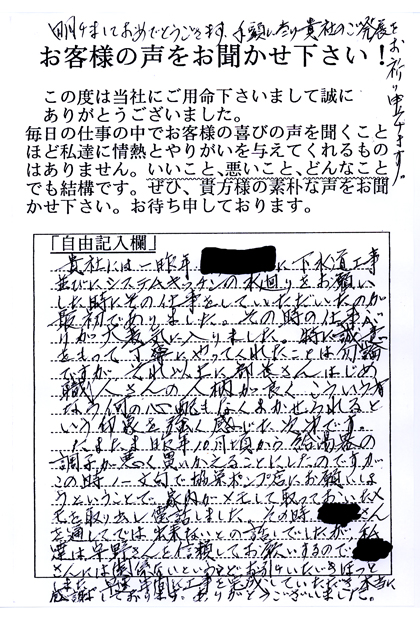 明けましておめでとうございます。年頭に当り貴社のご発展をお祈り申し上げます。
お客様の声をお聞かせ下さい！
この度は当社にご用命下さいまして誠に
ありがとうございました。
毎日の仕事の中でお客様の喜びの声を聞くこと
ほど私達に情熱とやりがいを与えてくれるもの
はありません。いいこと、悪いこと、どんなこと
でも結構です。ぜひ、貴方様の素朴な声をお聞
かせ下さい。お待ち申しております。
「自由記入欄」
貴社には一昨年 に下水道工事
並びにシステムキッチンの水廻りをお願い
した時にその仕事をしていただいたのが
最初でありました。その時の仕事ぶ
りが大変気に入りました。特に誠意
をもって丁寧にやってくれたことは勿論
ですが、それ以上に社長さんはじめ
職人さんの人柄が良く、こういう
なら何の心配もなくまかせられると
いう印象を強く感じた次第です。
たまたま昨年10月頃から給湯器の
調子が悪く買いかえることにしたのですが
この時、一文句で ポンプ店にお願いしよ
うということで、家内がメモして取っておいたメ
モを取り出し電話しました。その時 さん
を通してでは出来ないとの話しでしたが、私
達は早野さんを信頼してお願いするので
さんには関係ないというとお引きいただきほっと
しました。早速年内に工事を完成していただき本当に
感謝しております。ありがとうございました。